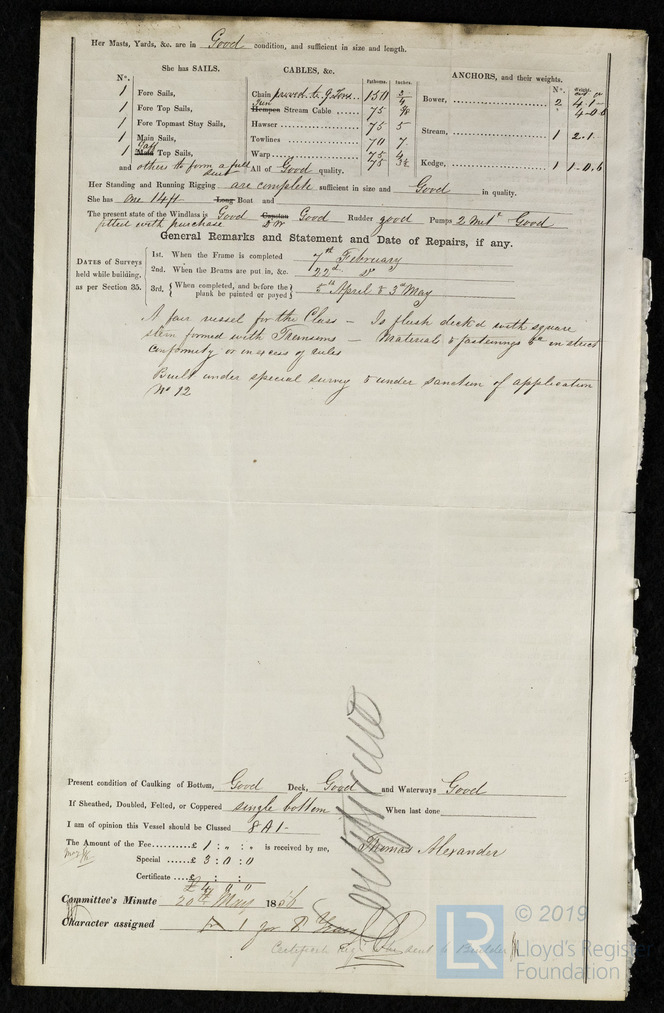 Her Masts, Yards, &c. are in Good condition, and sufficient in size and length.
She has SAILS.
CABLES, &c.
ANCHORS, and their weights.
Nº.
Fathoms.
Inches.
Nº.
Weight.
1 Fore Sails,
Chain proved to 9 Tons 150 3/4
Bower, 2 4.1.-
1 Fore Top Sails,
Iron Hempen Stream Cable 75
4.0.0
1 Fore Topmast Stay Sails,
Hawser 75 5
Stream, 1 2.1.
1 Main Sails,
Towlines 70 7
1 Gaff Main Top Sails,
Warp 75 4
75 3½
and others to form a full suit
All of Good quality.
Kedge, 1 1.0.6
Her Standing and Running Rigging are complete sufficient in size and Good in quality.
She has One 14ft Long Boat and
The present state of the Windlass is Good Capstan Good Rudder good Pumps 2 Good
fitted with purchase
General Remarks and Statement and Date of Repairs, if any.
DATES of Surveys held while building, as per Section 35.
1st. When the Frame is completed 7th February
2nd. When the Beams are put in, &c. 22d do
3rd. {When completed, and before the plank be painted or payed} 5th April & 3d May
A fair vessel for the Class – Is flush deck'd with square
stern formed with Transoms – Materials & fastenings &c in strict
conformity or in excess of rules
Built under special survey & under sanction of application
No 12
Present condition of Caulking of Bottom, Good Deck, Good and Waterways Good
If Sheathed, Doubled, Felted, or Coppered single bottom When last done
I am of opinion this Vessel should be Classed 8 A 1 -
The Amount of the Fee £ 1 : " : " is received by me, Thomas Alexander
Special £ 3 : 0 : 0
Certificate £ : :
£ 4 " "
Committee's Minute 20th May 1856
Character assigned A 1 for 8 Years
Certificate sent to Builder
© 2019
LR
Lloyd's Register
Foundation